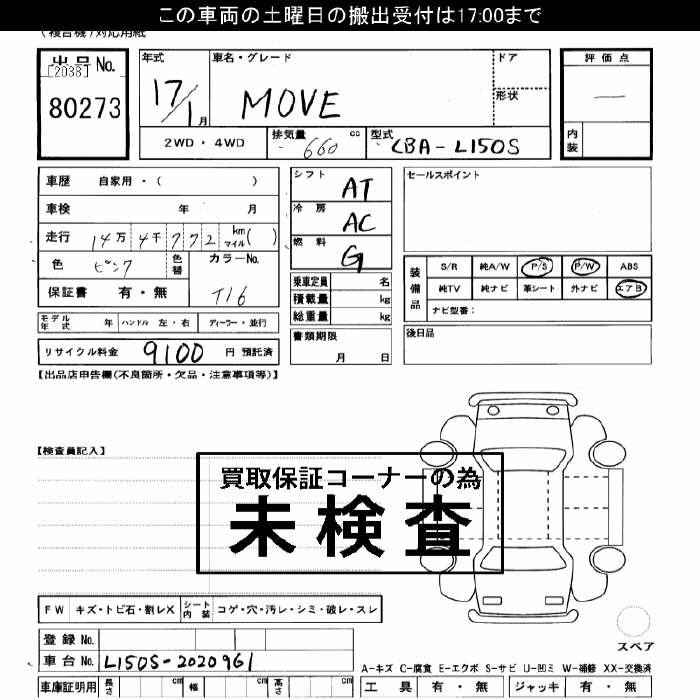 この車両の土曜日の搬出受付は17:00まで
(複合機)対応用紙
出品No.
[2038]
80273
年式
17/1月
車名・グレード
MOVE
ドア
形状
2WD・4WD
排気量 660 cc
型式 CBA-L150S
評価点
―
内装
車歴 自家用・( )
車検 年 月
走行 14万 4千 7 7 2 km マイル( )
色 ピンク
色替
カラーNo.
T16
保証書 有・無
シフト AT
冷房 AC
燃料 G
乗車定員 名
積載量 kg
総重量 kg
書類期限
月 日
セールスポイント
装備品
S/R 純A/W P/S P/W ABS
純TV 純ナビ 革シート 外ナビ エアB
ナビ型番：
後日品
モデル年式 年 ハンドル 左・右 ディーラー・並行
リサイクル料金 9100 円 預託済
【出品店申告欄(不良箇所・欠品・注意事項等)】
【検査員記入】
買取保証コーナーの為
未検査
FW キズ・トビ石・割レX
シート内装 コゲ・穴・汚レ・シミ・破レ・スレ
登録No.
車台No. L150S-2020961
車庫証明用 長さ cm 幅 cm 高さ cm
スペア
A-キズ C-腐食 E-エクボ S-サビ U-凹ミ W-補修 XX-交換済
工具 有・無 ジャッキ 有・無